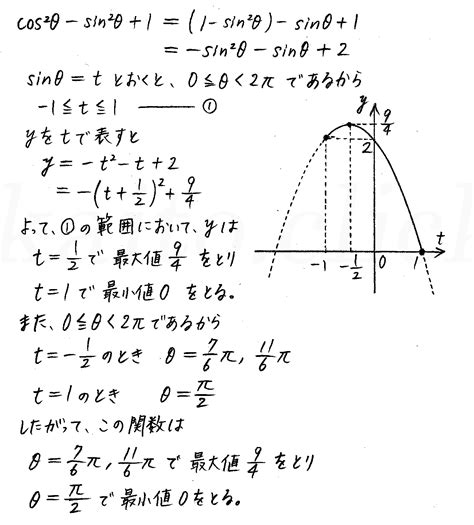 cos²θ - sin²θ + 1 = (1 - sin²θ) - sinθ + 1
= -sin²θ - sinθ + 2
sinθ = t とおくと、0 ≦ θ < 2π であるから
-1 ≦ t ≦ 1 ―― ①
yをtで表すと
y = -t² - t + 2
= -(t + 1/2)² + 9/4
よって、①の範囲において、yは
t = 1/2 で 最大値 9/4 をとり
t = 1 で 最小値 0 をとる。
また、0 ≦ θ < 2π であるから
t = -1/2 のとき θ = 7/6 π, 11/6 π
t = 1 のとき θ = π/2
したがって、この関数は
θ = 7/6 π, 11/6 π で 最大値 9/4 をとり
θ = π/2 で 最小値 0 をとる。
y
9/4
2
t
-1
-1/2
0
1